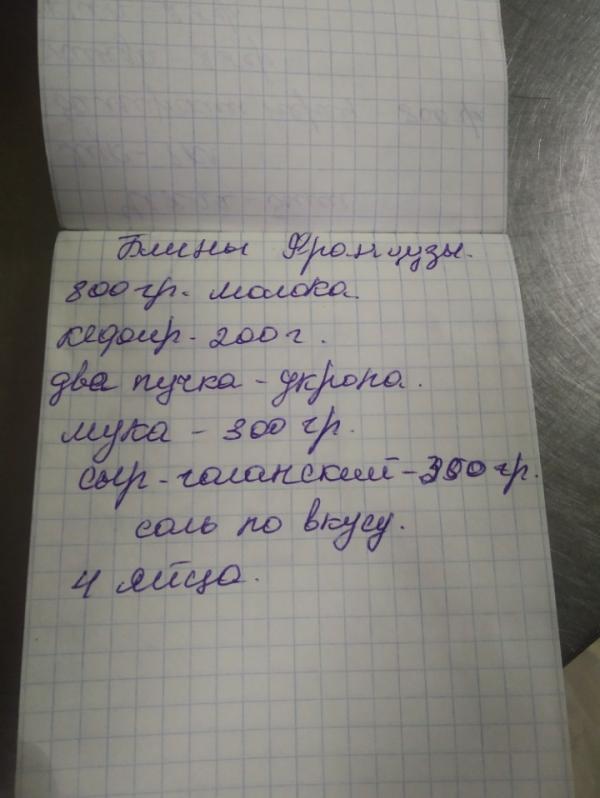 Блины Французы.
800гр. молока
кефир - 200 г.
два пучка - укропа.
мука - 300 гр.
сыр - голанский - 350 гр.
соль по вкусу.
4 яйца.